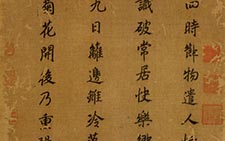 四時物遣人
識破常居快樂鄉
九日籬邊雖冷落
菊花開後乃重陽